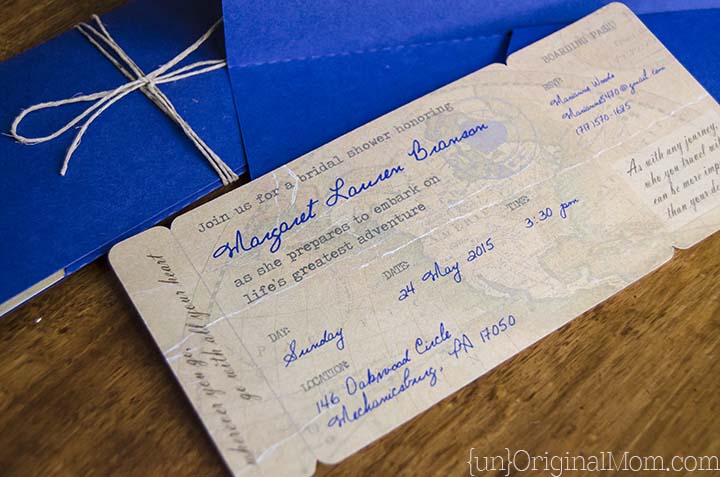 BOARDING PASS
RSVP:
Marianne Woods
(717) 570-1625
Join us for a bridal shower honoring
Margaret Lauren Branson
as she prepares to embark on
life's greatest adventure
DAY:
Sunday
DATE:
24 May 2015
TIME:
3:30 pm
LOCATION:
146 Oakwood Circle
Mechanicsburg, PA 17050
wherever you go,
go with all your heart
As with any journey,
who you travel wit
can be more impo
than your de
{un}OriginalMom.com